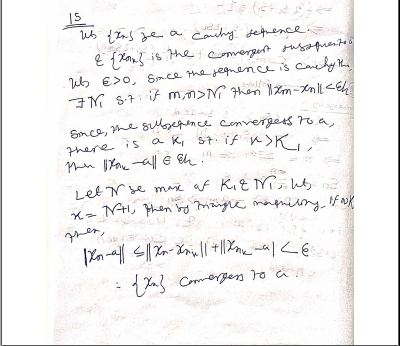 15
Let {xn} be a cauchy sequence
& {xnk} is the convergent subsequence
Let ε>0, since the sequence is cauchy th
∃ N1 s.t. if m,n>N1 then ||xm-xn|| <ε/2
Since, the subsequence convergess to a,
there is a K1 s.t. if k>K1,
then ||xnk -a|| ∈ ε/2.
Let N be max of K1 & N1. Let
k = N+1, then by triangle if n>N
then,
|xn-a|| ≤||xn-xnk||+||xnk -a| <ε
∴ {xn} convergess to a.